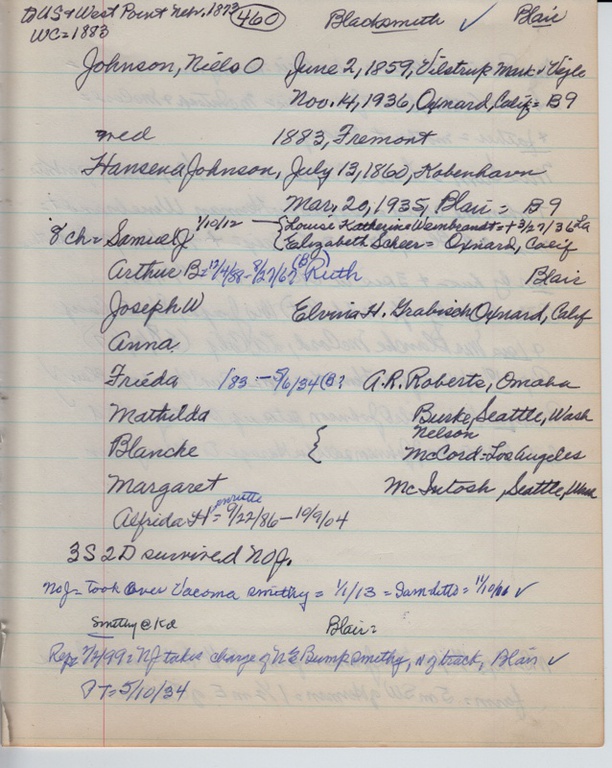 to US & West Point Nebr. 1873 (460) Blacksmith ✓ Blair
WC = 1883
Johnson, Niels O June 2, 1859, Vilstrup Mark, Vejle
Nov. 14, 1936, Oxnard, Calif = B9
med 1883, Fremont
Hansena Johnson, July 13, 1860, Kobenhavn
Mar, 20, 1935, Blair = B9
8 ch = Samuel J 1/10/12 { Louise Katherine = + 3/27/36 La
Elizabeth Scheer = Oxnard, Calif
Arthur B = 12/4/88 - 8/27/67 (B) Ruth Blair
Joseph W Elvina H. Grabisch Oxnard, Calif
Anna
Frieda /83 - 5/6/34 (B? A.R. Roberts, Omaha
Mathilda Burke, Seattle, Wash
Nelson
Blanche { McCord = Los Angeles
Margaret McIntosh, Seattle, Wash
Alfrida Henriette = 9/22/86 - 10/9/04
3 S 2 D survived NOJ.
NOJ = took over Vacoma smithy = 1/1/13 = Sam ditto = 11/10/06 ✓
Smithy @ Kd Blair =
Rep: 7/4/99 = NJ takes charge of N E Bump smithy, N of track, Blair ✓
PT = 5/10/34